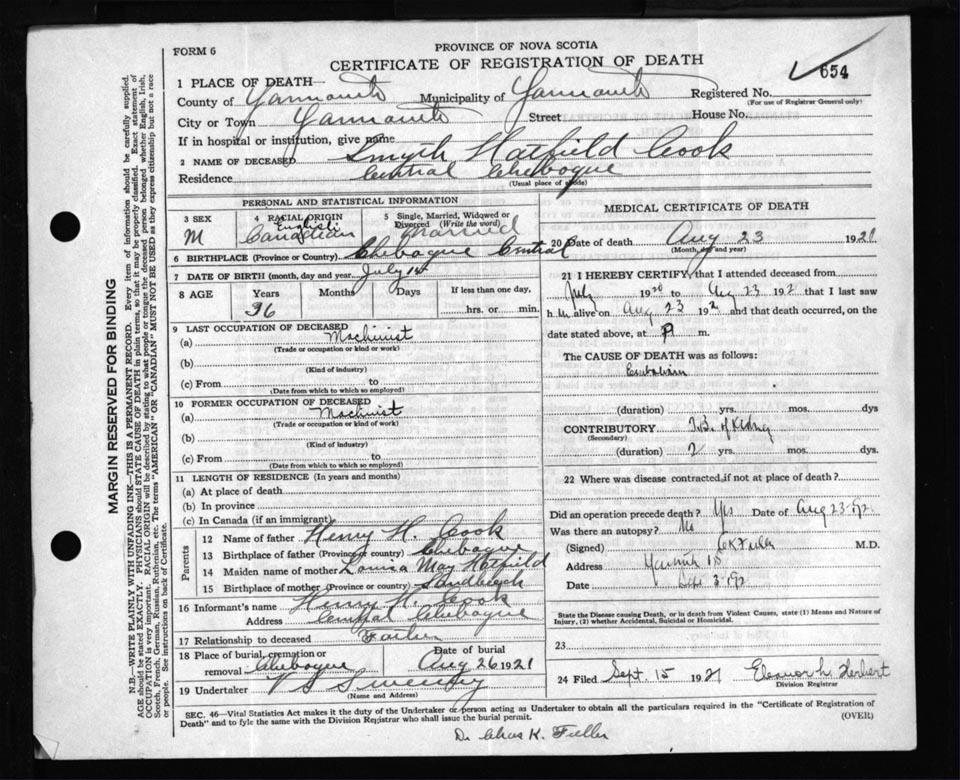 FORM 6
PROVINCE OF NOVA SCOTIA
CERTIFICATE OF REGISTRATION OF DEATH
654
1 PLACE OF DEATH—
County of Yarmouth Municipality of Yarmouth Registered No.
(For use of Registrar General only)
City or Town Yarmouth Street House No.
If in hospital or institution, give name
2 NAME OF DECEASED Smyth Hatfield Cook
Residence Central Chebogue
(Usual place of abode)
PERSONAL AND STATISTICAL INFORMATION
3 SEX M
4 RACIAL ORIGIN English Canadian
5 Single, Married, Widowed or Divorced (Write the word) Married
6 BIRTHPLACE (Province or Country) Chebogue Central
7 DATE OF BIRTH (month, day and year) July 14
8 AGE Years Months Days If less than one day,
36 hrs. or min.
9 LAST OCCUPATION OF DECEASED
(a) Machinist
(Trade or occupation or kind or work)
(b)
(Kind of industry)
(c) From to
(Date from which to which so employed)
10 FORMER OCCUPATION OF DECEASED
(a) Machinist
(Trade or occupation or kind of work)
(b)
(Kind of industry)
(c) From to
(Date from which to which so employed)
11 LENGTH OF RESIDENCE (In years and months)
(a) At place of death
(b) In province
(c) In Canada (if an immigrant)
Parents
12 Name of father Henry H. Cook
13 Birthplace of father (Province or country) Chebogue
14 Maiden name of mother Louisa May Hatfield
15 Birthplace of mother (Province or country) Sandbeach
16 Informant's name Henry H. Cook
Address Central Chebogue
17 Relationship to deceased Father
18 Place of burial, cremation or removal Chebogue Date of burial Aug 26 1921
19 Undertaker V S Sweeney
(Name and Address)
MEDICAL CERTIFICATE OF DEATH
20 Date of death Aug 23 1921
(Month, day and year)
21 I HEREBY CERTIFY, that I attended deceased from
July 1920 to Aug 23 192 that I last saw
h im alive on Aug 23 192 and that death occurred, on the
date stated above, at P m.
The CAUSE OF DEATH was as follows:
Embolism
(duration) yrs. mos. dys
CONTRIBUTORY T.B. of Kidney
(Secondary)
(duration) 2 yrs. mos. dys.
22 Where was disease contracted, if not at place of death?
Did an operation precede death? Yes Date of Aug 23
Was there an autopsy? No
(Signed) C K Fuller M.D.
Address Yarmouth NS
Date Sept 3
State the Disease causing Death, or in death from Violent Causes, state (1) Means and Nature of
Injury, (2) whether Accidental, Suicidal or Homicidal.
23
24 Filed Sept. 15 1921 Eleanor L. Herbert
Division Registrar
SEC. 46—Vital Statistics Act makes it the duty of the Undertaker or person acting as Undertaker to obtain all the particulars required in the "Certificate of Registration of
Death" and to fyle the same with the Division Registrar who shall issue the burial permit.
(OVER)
Dr Chas K. Fuller
MARGIN RESERVED FOR BINDING
N.B.—WRITE PLAINLY, WITH UNFADING INK—THIS IS A PERMANENT RECORD. Every item of information should be carefully supplied.
AGE should be stated EXACTLY. PHYSICIANS should STATE CAUSE OF DEATH in plain terms, so that it may be properly classified. Exact statement of
OCCUPATION is very important. RACIAL ORIGIN will be described by stating to what people or tongue the deceased person belonged whether English, Irish,
Scotch, French, German, Russian, Ruthenian, etc. The terms "AMERICAN" OR "CANADIAN" MUST NOT BE USED as they express citizenship but not a race
or people. See instructions on back of Certificate.